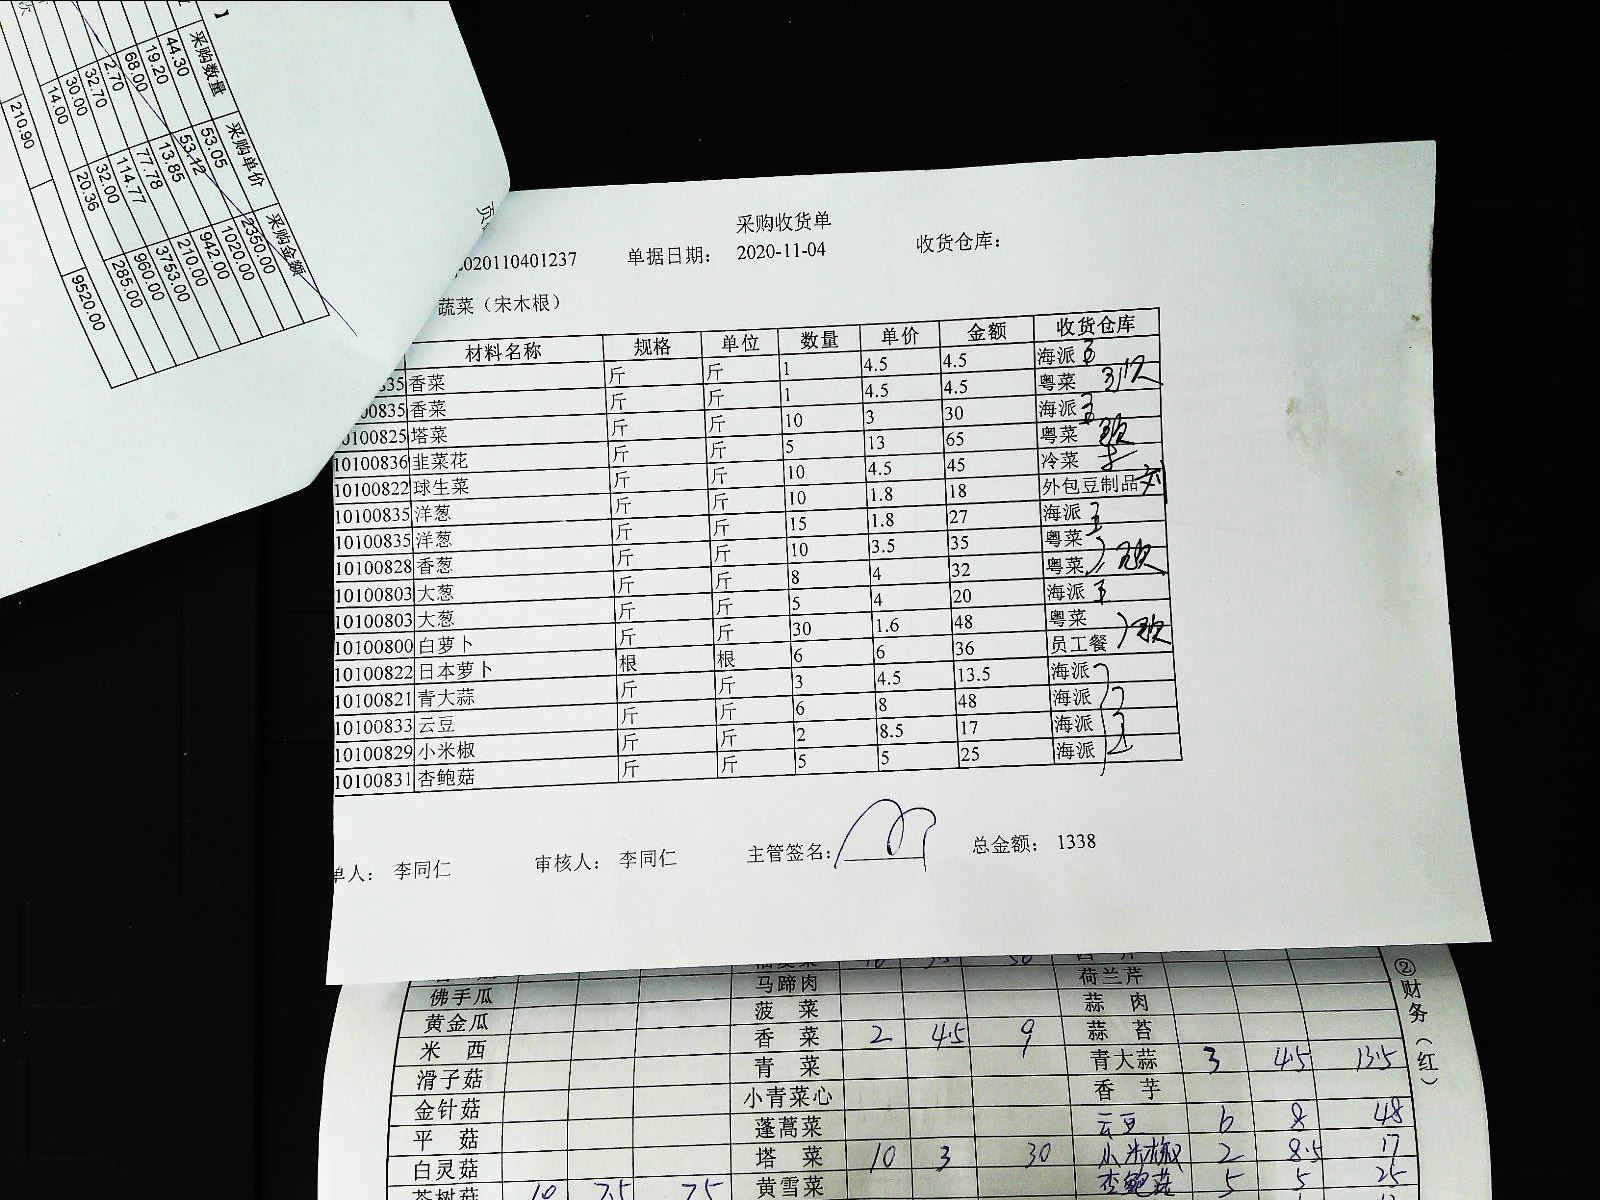 】
采购数量 采购单价 采购金额
44.30 53.05 2350.00
19.20 53.12 1020.00
68.00 13.85 942.00
2.70 77.78 210.00
32.70 114.77 3753.00
30.00 32.00 960.00
14.00 20.36 285.00
210.90 9520.00
采购收货单
2020110401237 单据日期： 2020-11-04 收货仓库：
蔬菜（宋木根）
材料名称 规格 单位 数量 单价 金额 收货仓库
835 香菜 斤 斤 1 4.5 4.5 海派
00835 香菜 斤 斤 1 4.5 4.5 粤菜
0100825 塔菜 斤 斤 10 3 30 海派
10100836 韭菜花 斤 斤 5 13 65 粤菜
10100822 球生菜 斤 斤 10 4.5 45 冷菜
10100835 洋葱 斤 斤 10 1.8 18 外包豆制品
10100835 洋葱 斤 斤 15 1.8 27 海派
10100828 香葱 斤 斤 10 3.5 35 粤菜
10100803 大葱 斤 斤 8 4 32 粤菜
10100803 大葱 斤 斤 5 4 20 海派
10100800 白萝卜 斤 斤 30 1.6 48 粤菜
10100822 日本萝卜 根 根 6 6 36 员工餐
10100821 青大蒜 斤 斤 3 4.5 13.5 海派
10100833 云豆 斤 斤 6 8 48 海派
10100829 小米椒 斤 斤 2 8.5 17 海派
10100831 杏鲍菇 斤 斤 5 5 25 海派
单人： 李同仁 审核人： 李同仁 主管签名： 总金额： 1338
②财务（红）
佛手瓜 马蹄肉 荷兰芹
黄金瓜 菠菜 蒜肉
米西 香菜 2 4.5 9 蒜苔
滑子菇 青菜 青大蒜 3 4.5 13.5
金针菇 小青菜心 香芋
平菇 蓬蒿菜 云豆 6 8 48
白灵菇 塔菜 10 3 30 小米椒 2 8.5 17
茶树菇 10 7.5 75 黄雪菜 杏鲍菇 5 5 25